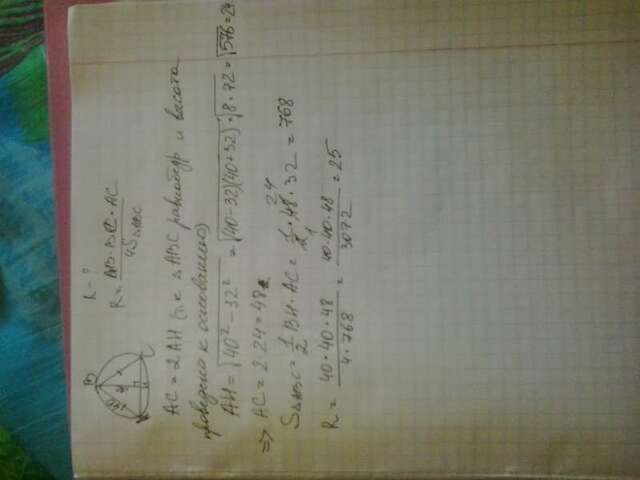 R - ?
R = AB·BC·AC / 4S△ABC
B
C
AC = 2AH (т.к △ABC равнобедр и высота
проведена к основанию)
AH = √40² - 32² = √(40-32)(40+32) = √8·72 = √576 = 24
=> AC = 2·24 = 48
S△ABC = 1/2 BH·AC = 1/2·48·32 = 768
24
1
R = 40·40·48 / 4·768 = 40·40·48 / 3072 = 25